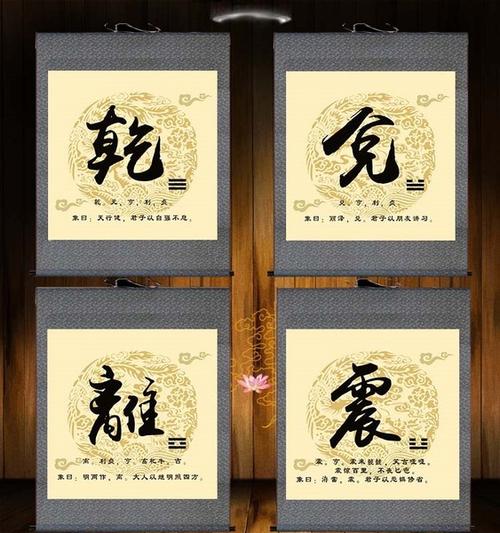 乾
乾，元，亨，利，贞。
象曰：天行健，君子以自强不息。
兑
兑，亨，利，贞。
象曰：丽泽，兑。君子以朋友讲习。
離
离，利贞，亨，畜牝牛，吉。
象曰：明两作，离，大人以继明照四方。
震
震，亨，震来虩虩，笑言哑哑。
震惊百里，不丧匕鬯。
象曰：洊雷，震。君子以恐惧修省。